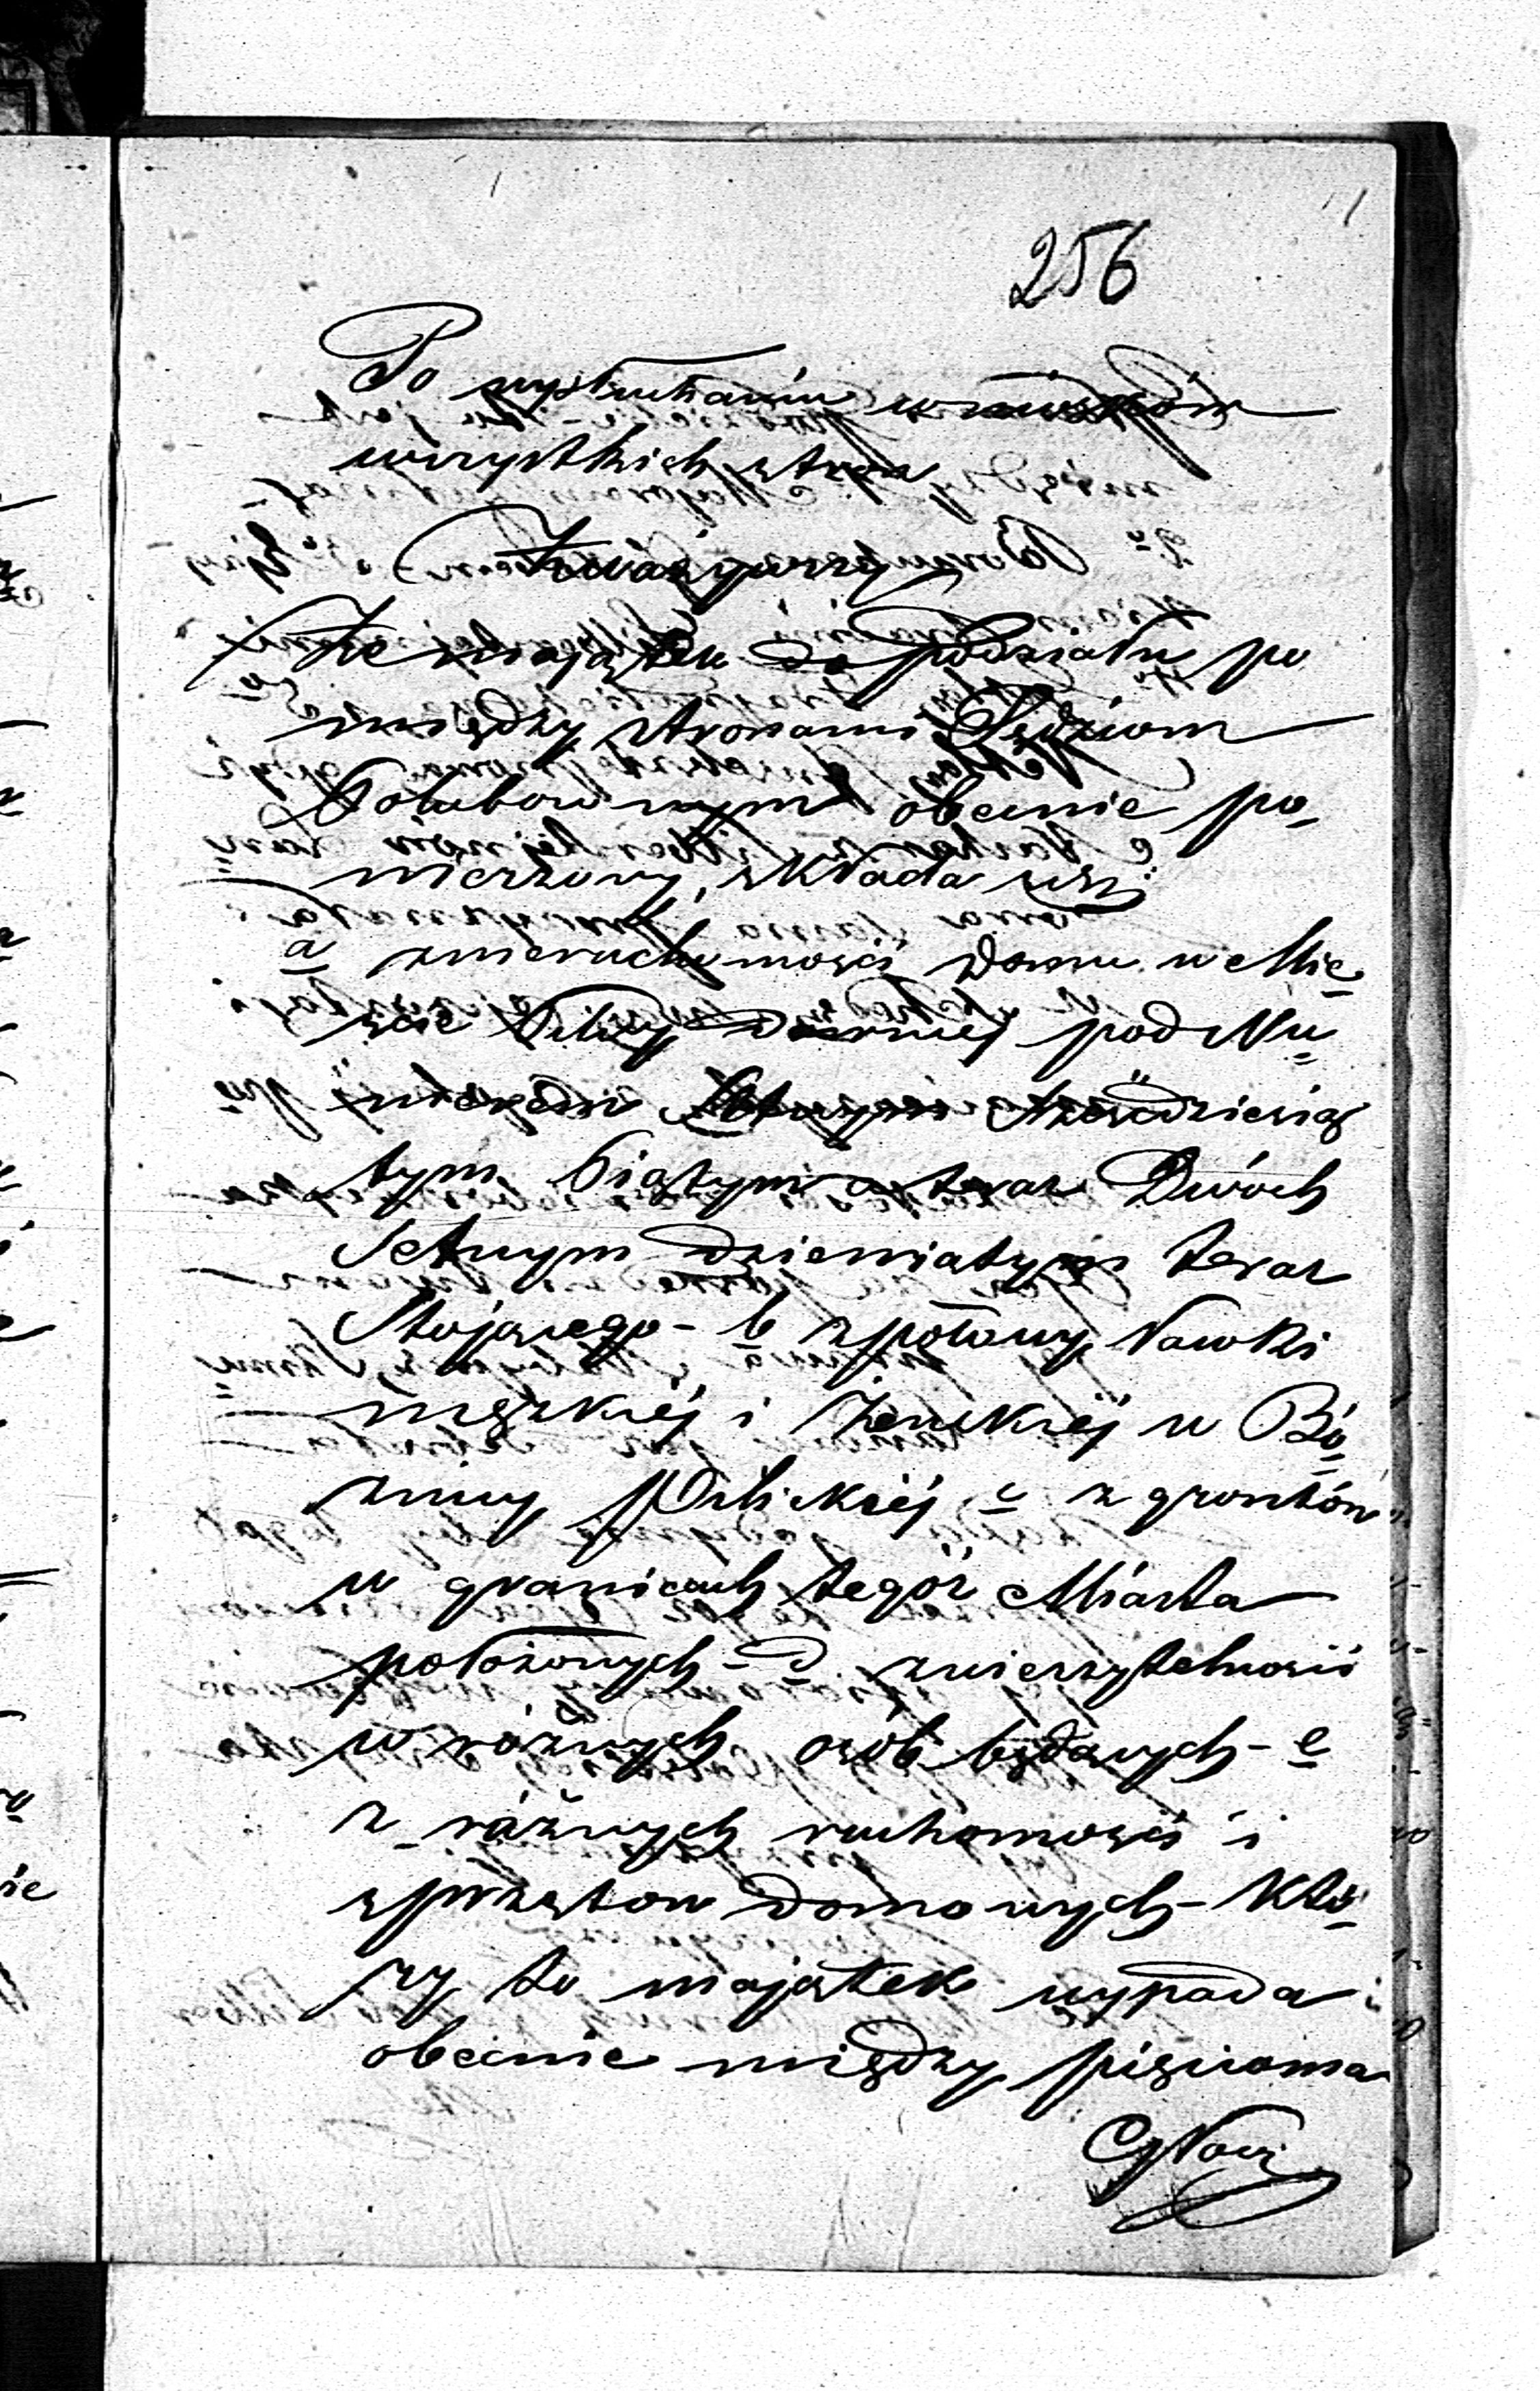 256
Po wysłuchaniu wniosków
wszystkich stron
Zważywszy
Że majątek do podziału po
między stronami Sędziom
Polubownym obecnie po„
wierzony, składa się
a z nieruchomości Domu w Mie„
ście Pilicy Dolnej pod Nu„
merem Starym sześćdziesią„
tym Piątym a teraz Dwóch
Setnym dziewiątym teraz
Stojącego - b z połowy Ławki
męzkiéj i Żeńskiéj w Bó„
żnicy Pilickiéj c z gruntów
w granicach tegóż Miasta
położonych - d z wierzytelności
u różnych osób będących - e
z różnych ruchomości i
sprzętow domowych - Któ„
ry to majątek wypada
obecnie między pięcioma